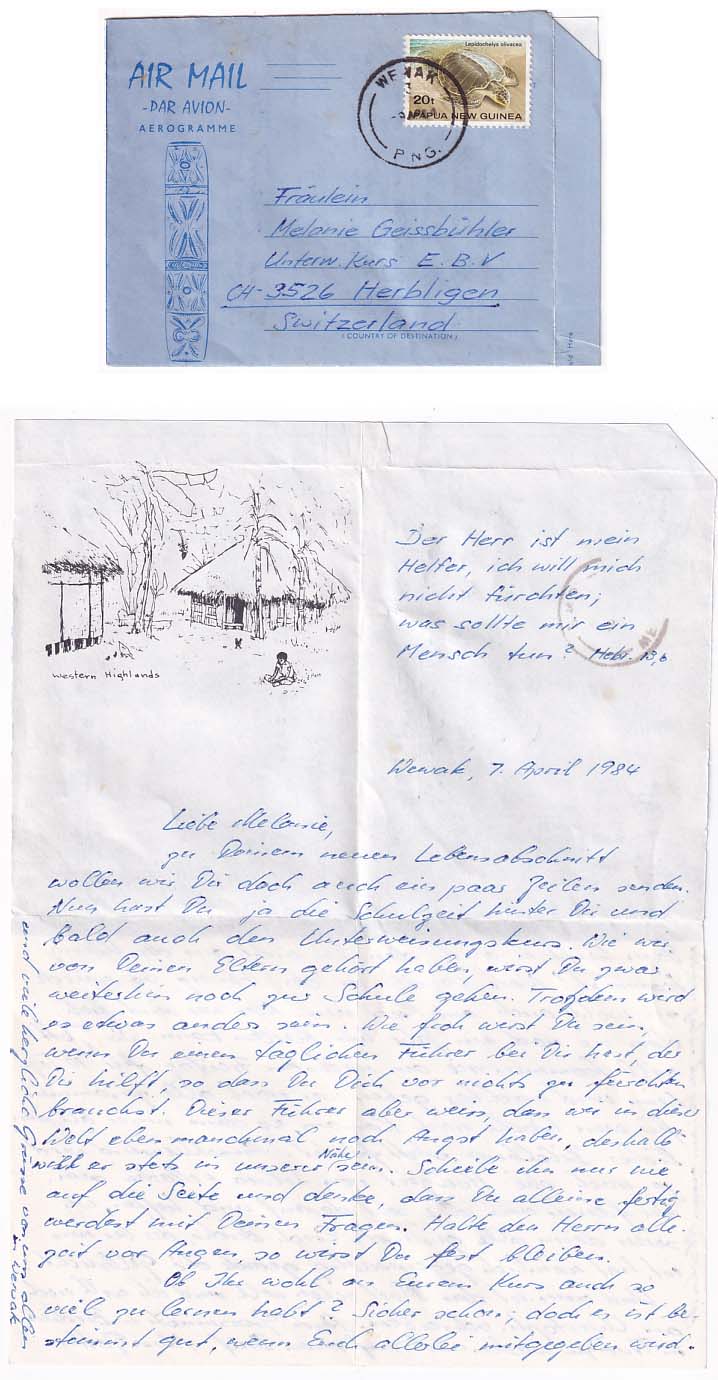 AIR MAIL
-PAR AVION-
AEROGRAMME
Lepidochelys olivacea
20t
PAPUA NEW GUINEA
WEWAK
P.N.G.
Fräulein
Melanie Geissbühler
Unterw. Kurs E.B.V
CH-3526 Herbligen
Switzerland
(COUNTRY OF DESTINATION)
Western Highlands
Der Herr ist mein
Helfer, ich will mich
nicht fürchten;
was sollte mir ein
Mensch tun? Hebr. 13,6
Wewak, 7. April 1984
Liebe Melanie,
zu Deinem neuen Lebensabschnitt
wollen wir Dir doch auch ein paar Zeilen senden.
Nun hast Du ja die Schulzeit hinter Dir und
bald auch den Unterweisungskurs. Wie wir
von Deinen Eltern gehört haben, wirst Du zwar
weiterhin noch zur Schule gehen. Trotzdem wird
es etwas anders sein. Wie froh wirst Du sein,
wenn Du einen täglichen Führer bei Dir hast, der
Dir hilft, so dass Du Dich vor nichts zu fürchten
brauchst. Dieser Führer aber weiss, dass wir in dieser
Welt eben manchmal noch Angst haben, deshalb
will er stets in unserer Nähe sein. Schiebe ihn nur nie
auf die Seite und denke, dass Du alleine fertig
werdest mit Deinen Fragen. Halte den Herrn alle-
zeit vor Augen, so wirst Du fest bleiben.
Ob Ihr wohl an Eurem Kurs auch so
viel zu lernen habt? Sicher schon; doch es ist be-
stimmt gut, wenn Euch allerlei mitgegeben wird.
und viele herzliche Grüsse von uns allen
in Wewak